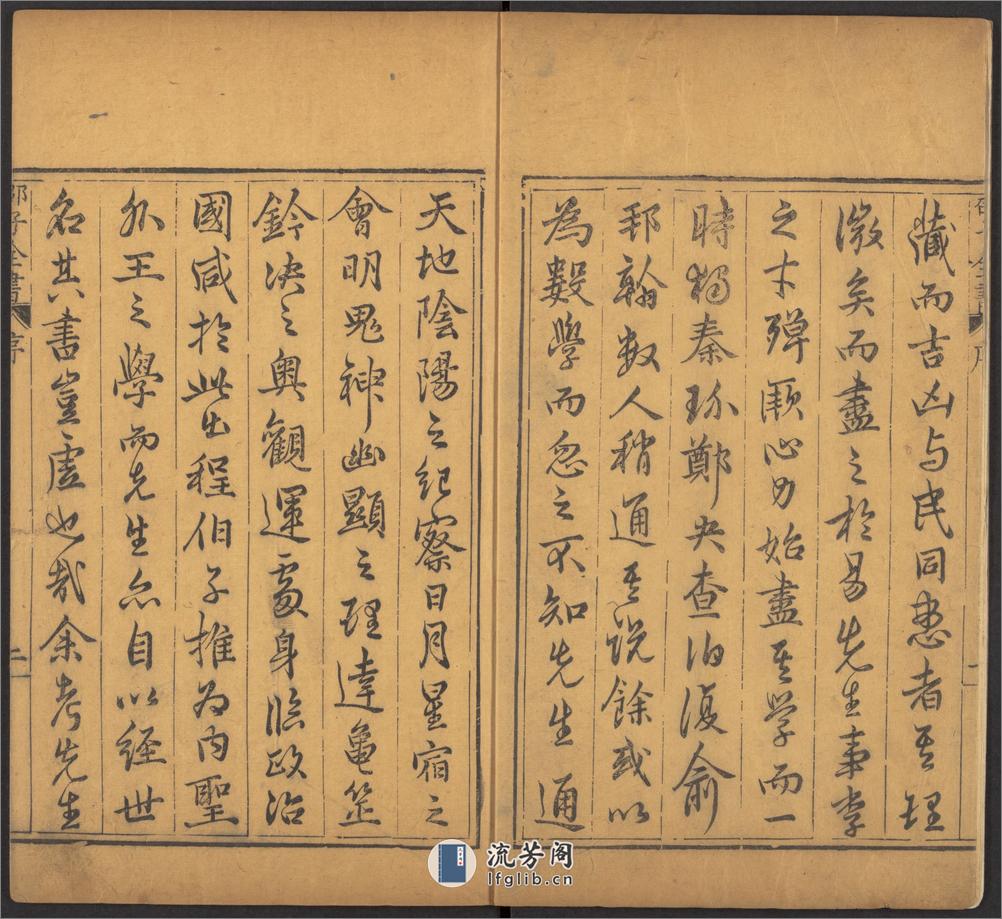 藏而吉凶与民同患者其理
微矣而盡之於易先生事李
之才殚厥心力始盡其學而一
時獨秦玠鄭夬查伯復俞
邦翰数人稍通其説餘或以
為數學而忽之不知先生通
天地陰陽之紀察日月星宿之
會明鬼神幽顯之理達龜筮
鈐决之奥觀運處身臨政治
國咸於此出程伯子推為内聖
外王之學而先生亦自以經世
名其書豈虚也哉余考先生
邵子全書 序 二
流芳阁
lfglib.cn